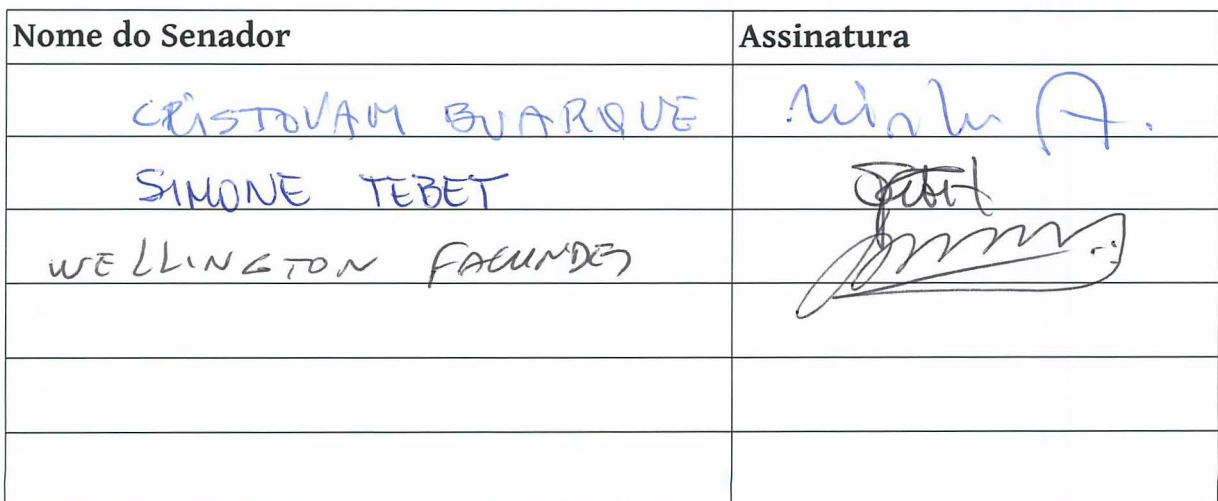 Nome do Senador Assinatura
CRISTOVAM BUARQUE
SIMONE TEBET Tebet
WELLINGTON FAGUNDES